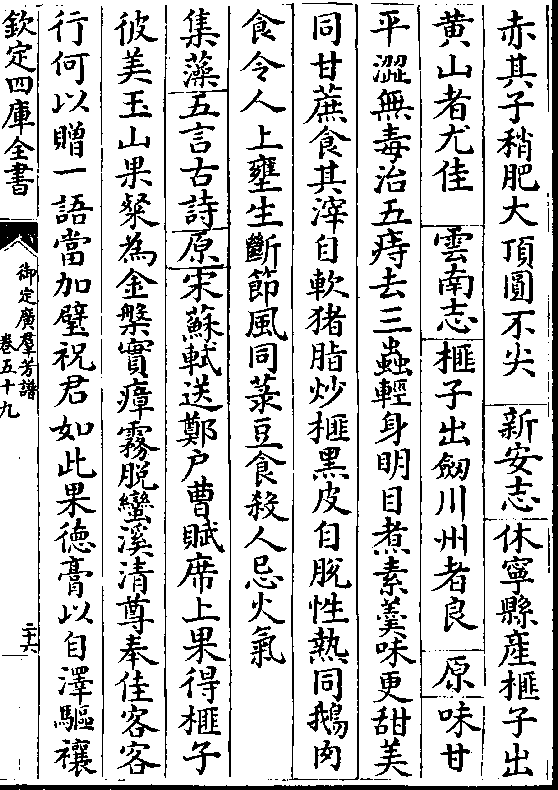 赤其子稍肥大頂圓不尖　新安志休寧縣產榧子出
黄山者尤佳　雲南志榧子出劒川州者良　原味甘
平澀無毒治五痔去三蟲輕身明目煮素羮味更甜美
同甘蔗食其滓自軟猪脂炒榧黑皮自脱性熱同鵝肉
食令人上壅生斷節風同菉豆食殺人忌火氣
集藻五言古詩原宋蘇軾送鄭户曹賦席上果得榧子
彼美玉山果粲為金槃實瘴霧脱蠻溪清尊奉佳客客
行何以贈一語當加璧祝君如此果徳膏以自澤驅禳
欽定四庫全書
御定廣羣芳譜
卷五十九
二十六